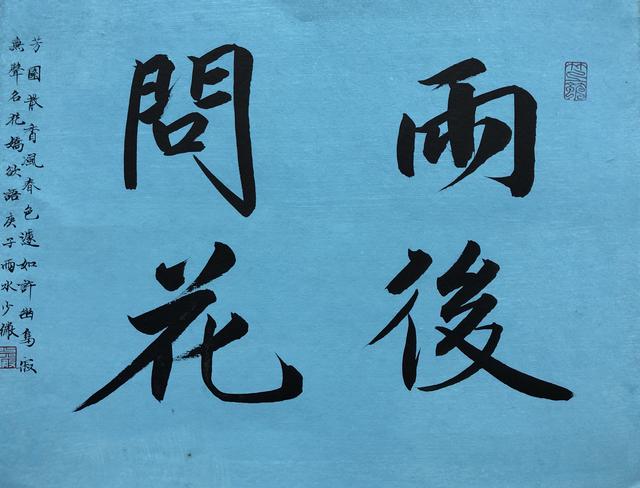 雨後
問花
芳園散香風春色遽如許幽鳥寂
無聲名花嬌欲語庚子雨水少儀